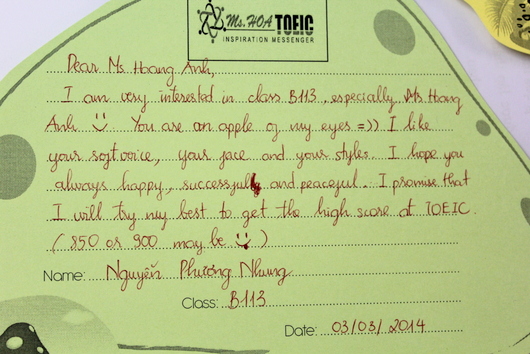 Ms. HOA TOEIC
INSPIRATION MESSENGER
Dear Ms Hoang Anh,
I am very interested in class B113, especially Ms Hoang
Anh :) You are an apple of my eyes =)) I like
your soft voice, your face and your styles. I hope you
always happy, successful and peaceful. I promise that
I will try my best to get the high score at TOEIC
( 850 or 900 may be :) )
Name: Nguyễn Phương Nhung
Class: B113
Date: 03/03/2014